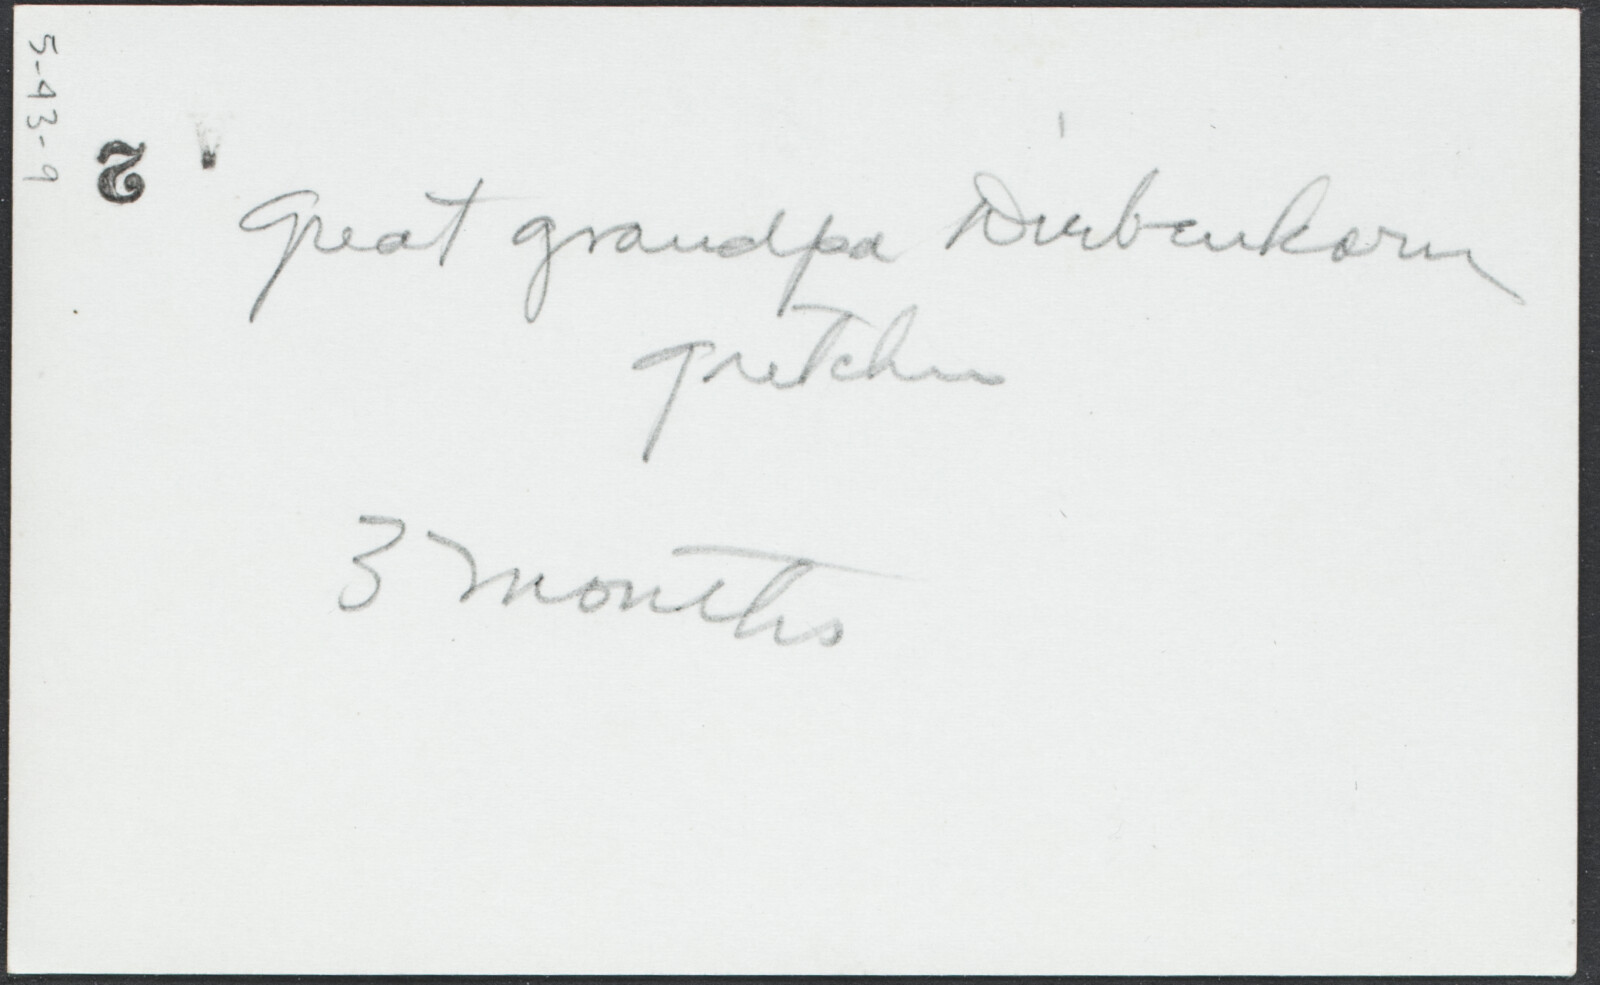 5-43-9
2
Great grandpa Diebenkorn
Gretchen
3 months